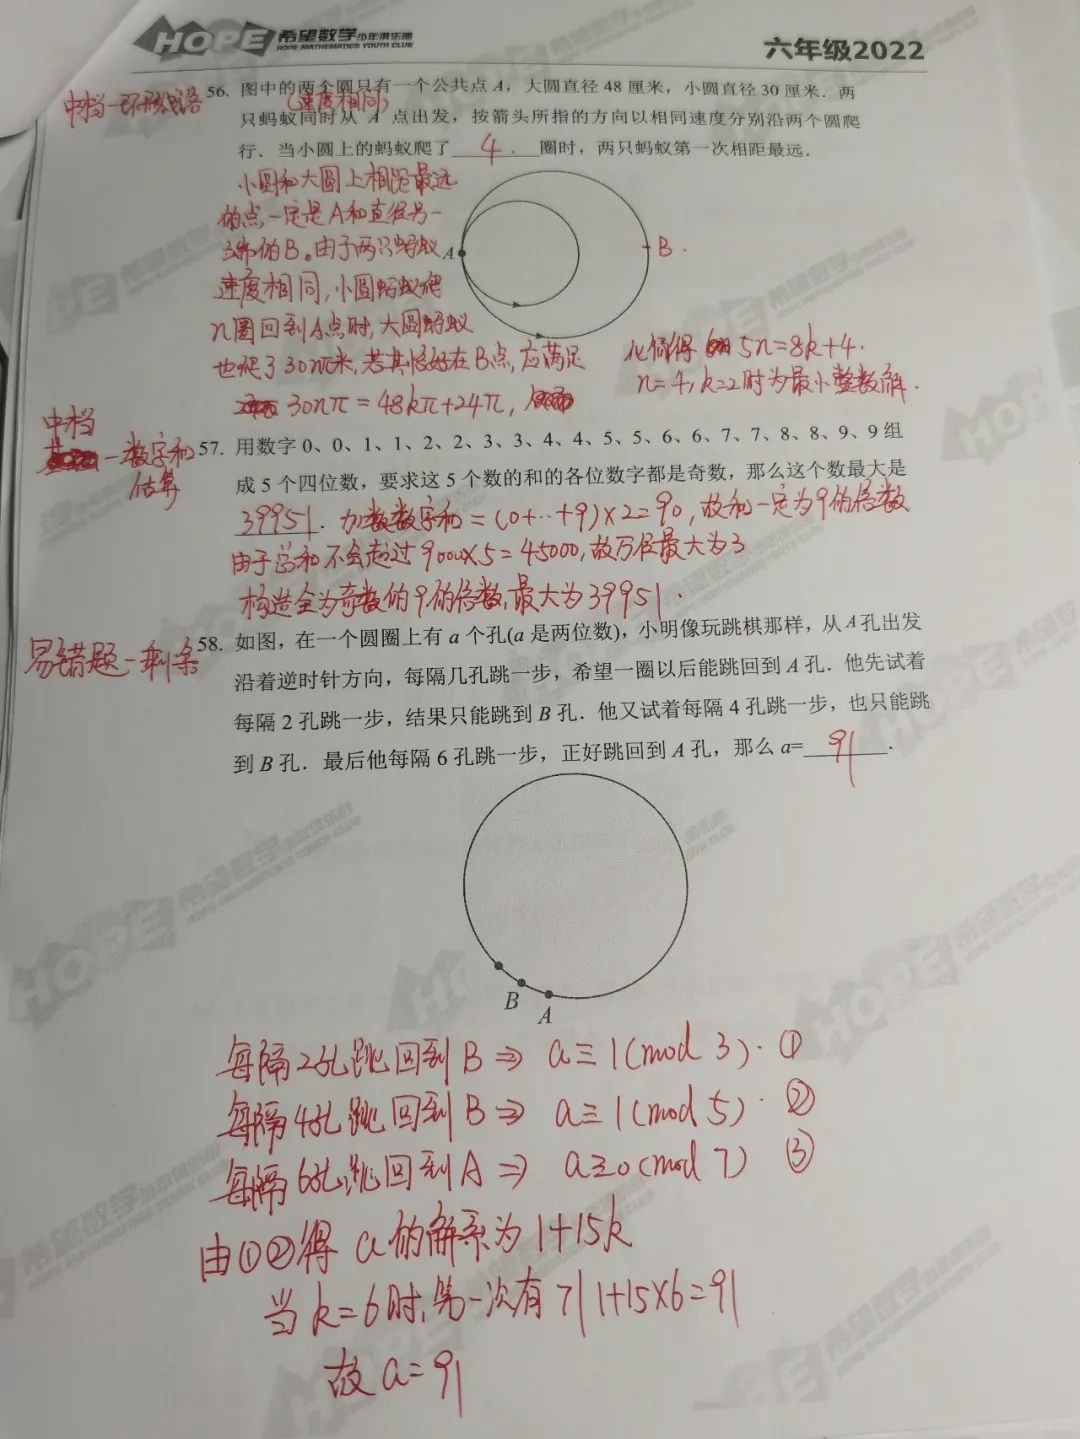 HOPE 希望数学少年俱乐部
HOPE MATHEMATICS YOUTH CLUB
六年级2022
中档-环形
56. 图中的两个圆只有一个公共点 A，大圆直径 48 厘米，小圆直径 30 厘米．两
(速度相同)
只蚂蚁同时从 A 点出发，按箭头所指的方向以相同速度分别沿两个圆爬
行．当小圆上的蚂蚁爬了 4 圈时，两只蚂蚁第一次相距最远．
小圆和大圆上相距最远
的点一定是A和直径另一
端的B。由于两只蚂蚁
A
B
速度相同,小圆蚂蚁爬
n圈回到A点时,大圆蚂蚁
也爬了30nπ米,若其恰好在B点,应满足
30nπ=48kπ+24π,
化简得 5n=8k+4.
n=4,k=2时为最小整数解.
中档
-数字和
估算
57. 用数字 0、0、1、1、2、2、3、3、4、4、5、5、6、6、7、7、8、8、9、9 组
成 5 个四位数，要求这 5 个数的和的各位数字都是奇数，那么这个数最大是
39951. 加数数字和=(0+…+9)×2=90,故和一定为9的倍数
由于总和不会超过9000×5=45000,故万位最大为3
构造全为奇数的9的倍数,最大为39951.
易错题-剩余
58. 如图，在一个圆圈上有 a 个孔(a 是两位数)，小明像玩跳棋那样，从 A 孔出发
沿着逆时针方向，每隔几孔跳一步，希望一圈以后能跳回到 A 孔．他先试着
每隔 2 孔跳一步，结果只能跳到 B 孔．他又试着每隔 4 孔跳一步，也只能跳
到 B 孔．最后他每隔 6 孔跳一步，正好跳回到 A 孔，那么 a= 91 ．
B
A
每隔2孔跳回到B⇒ a≡1(mod 3). ①
每隔4孔跳回到B⇒ a≡1(mod 5). ②
每隔6孔跳回到A⇒ a≡0(mod 7) ③
由①②得 a的解系为1+15k
当k=6时,第一次有7|1+15×6=91
故a=91